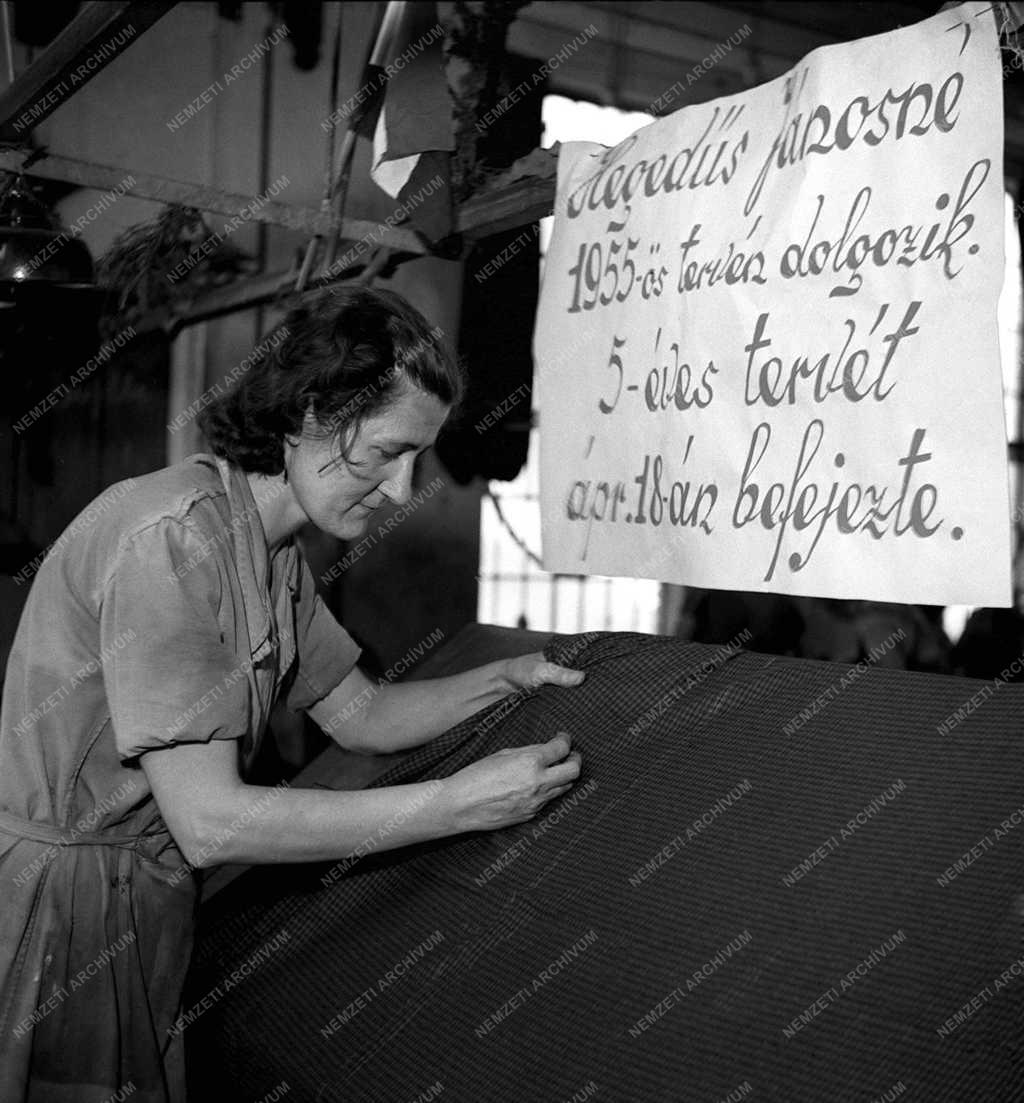 Hegedüs Jánosné
1955-ös tervén dolgozik.
5-éves tervét
ápr. 18-án befejezte.
NEMZETI ARCHÍVUM